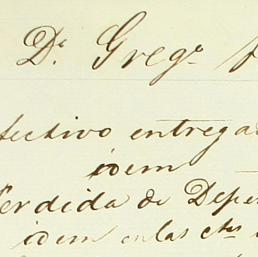 D.ⁿ Greg.º
fectivo entrega
idem
Perdida de Depe
idem en las ctas